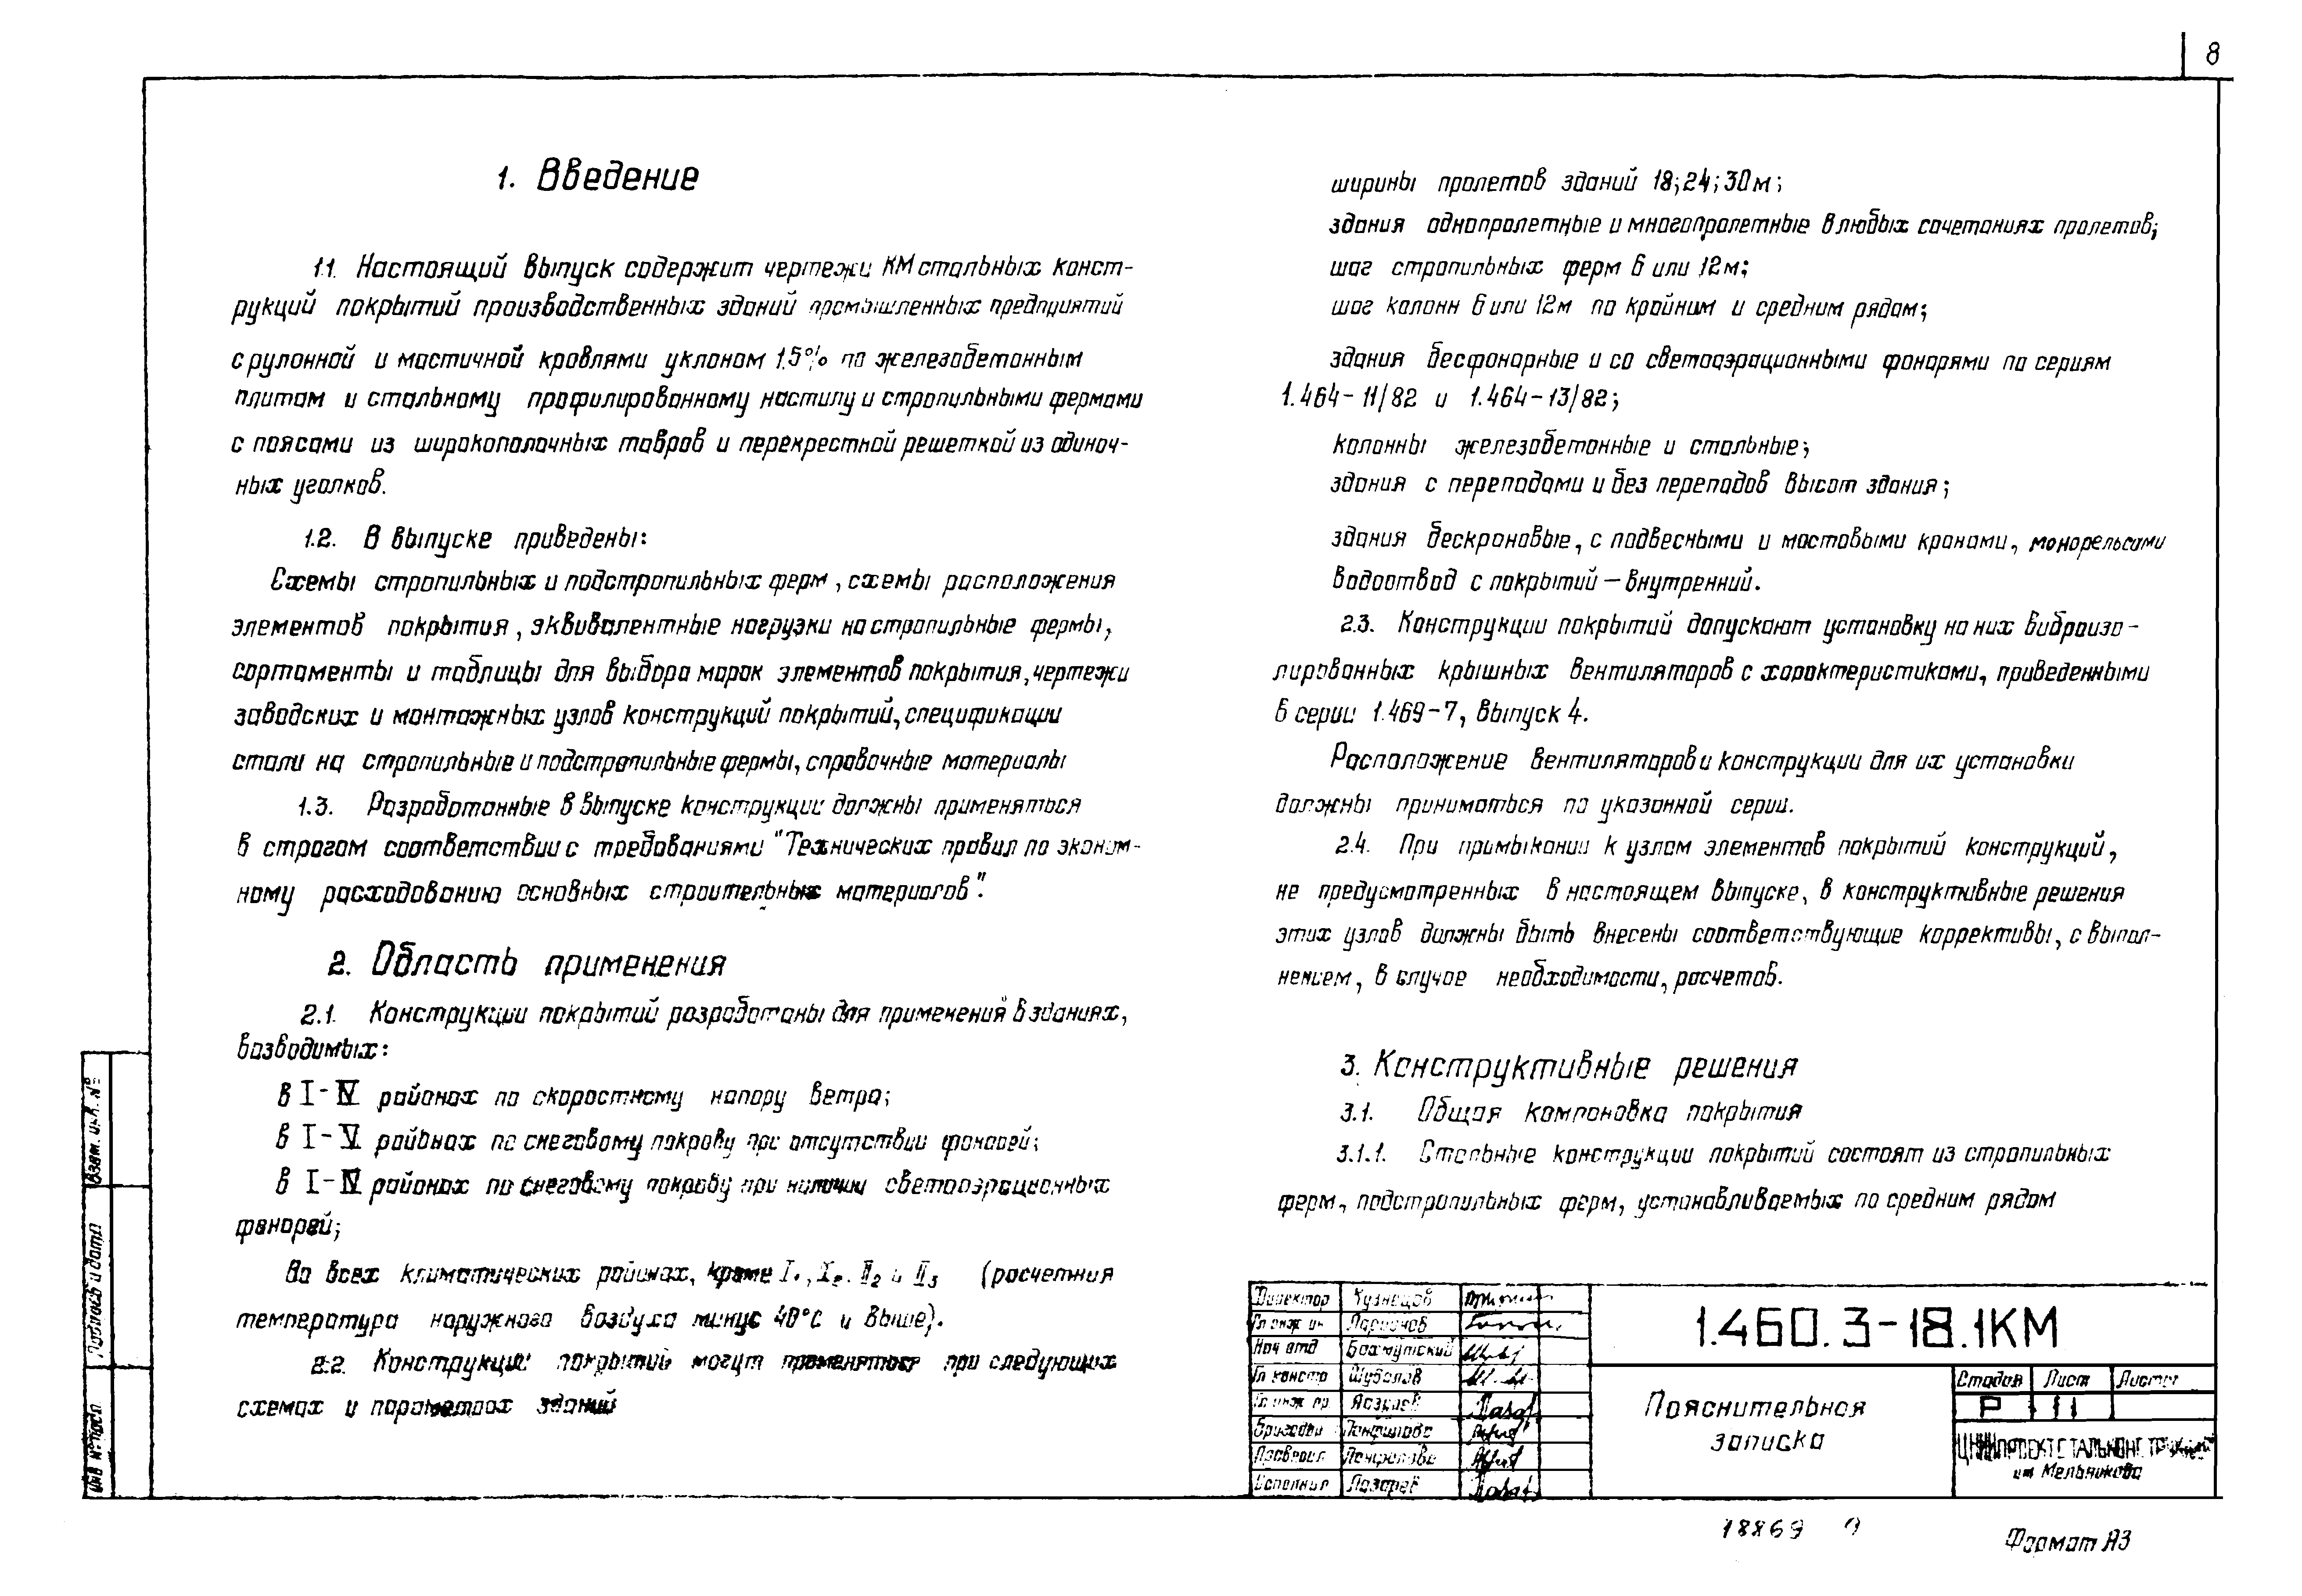 8
1. Введение
1.1. Настоящий выпуск содержит чертежи КМ стальных конст-
рукций покрытий производственных зданий промышленных предприятий
с рулонной и мастичной кровлями уклоном 1.5% по железобетонным
плитам и стальному профилированному настилу и стропильными фермами
с поясами из широкополочных тавров и перекрестной решеткой из одиноч-
ных уголков.
1.2. В выпуске приведены:
Схемы стропильных и подстропильных ферм, схемы расположения
элементов покрытия, эквивалентные нагрузки на стропильные фермы,
сортаменты и таблицы для выбора марок элементов покрытия, чертежи
заводских и монтажных узлов конструкций покрытий, спецификации
стали на стропильные и подстропильные фермы, справочные материалы
1.3. Разработанные в выпуске конструкции должны применяться
в строгом соответствии с требованиями "Технических правил по эконом-
ному расходованию основных строительных материалов".
2. Область применения
2.1. Конструкции покрытий разработаны для применения в зданиях,
возводимых:
в I-IV районах по скоростному напору ветра;
в I-V районах по снеговому покрову при отсутствии фонарей;
в I-IV районах по снеговому покрову при наличии светоаэрационных
фонарей;
Во всех климатических районах, кроме I₁, I₂, II₂ и II₃ (расчетния
температура наружного воздуха минус 40°С и выше).
2.2. Конструкции покрытий могут применяться при следующих
схемах и параметрах зданий
ширины пролетов зданий 18; 24; 30м;
здания однопролетные и многопролетные в любых сочетаниях пролетов;
шаг стропильных ферм 6 или 12м;
шаг колонн 6 или 12м по крайним и средним рядам;
здания бесфонарные и со светоаэрационными фонарями по сериям
1.464-11/82 и 1.464-13/82;
колонны железобетонные и стальные;
здания с перепадами и без перепадов высот здания;
здания бескрановые, с подвесными и мостовыми кранами, монорельсами
водоотвод с покрытий – внутренний.
2.3. Конструкции покрытий допускают установку на них виброизо-
лированных крышных вентиляторов с характеристиками, приведенными
в серии 1.469-7, выпуск 4.
Расположение вентиляторов и конструкции для их установки
должны приниматься по указанной серии.
2.4. При примыкании к узлам элементов покрытий конструкций,
не предусмотренных в настоящем выпуске, в конструктивные решения
этих узлов должны быть внесены соответствующие коррективы, с выпол-
нением, в случае необходимости, расчетов.
3. Конструктивные решения
3.1. Общая компоновка покрытия
3.1.1. Стальные конструкции покрытий состоят из стропильных
ферм, подстропильных ферм, устанавливаемых по средним рядам
Взам. инв. №
Подпись и дата
Инв № подл
Директор Кузнецов
Гл инж ин Ларионов
Нач отд Бахмутский
Гл констр Шувалов
Гл инж пр
Бригадир
Проверил
Исполнил Лазарев
1.460.3-18.1КМ
Пояснительная
записка
Стадия Лист Листов
Р 1 11
ЦНИИПРОЕКТСТАЛЬКОНСТРУКЦИЯ
им Мельникова
18869
Формат А3